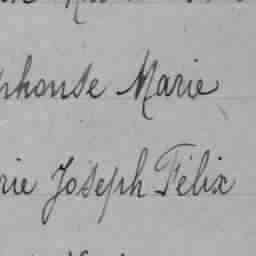 phonse Marie
rie Joseph Félix